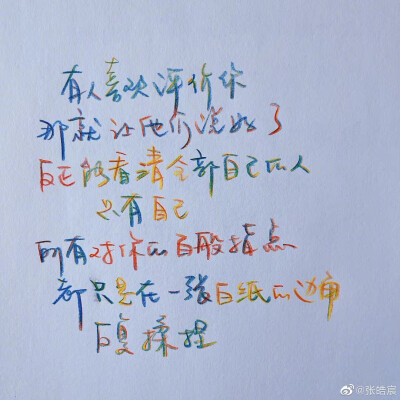 有人喜欢评价你
那就让他们说好了
反正能看清全部自己的人
只有自己
所有对你的百般指点
都只是在一张白纸的边角
反复揉捏
@张皓宸